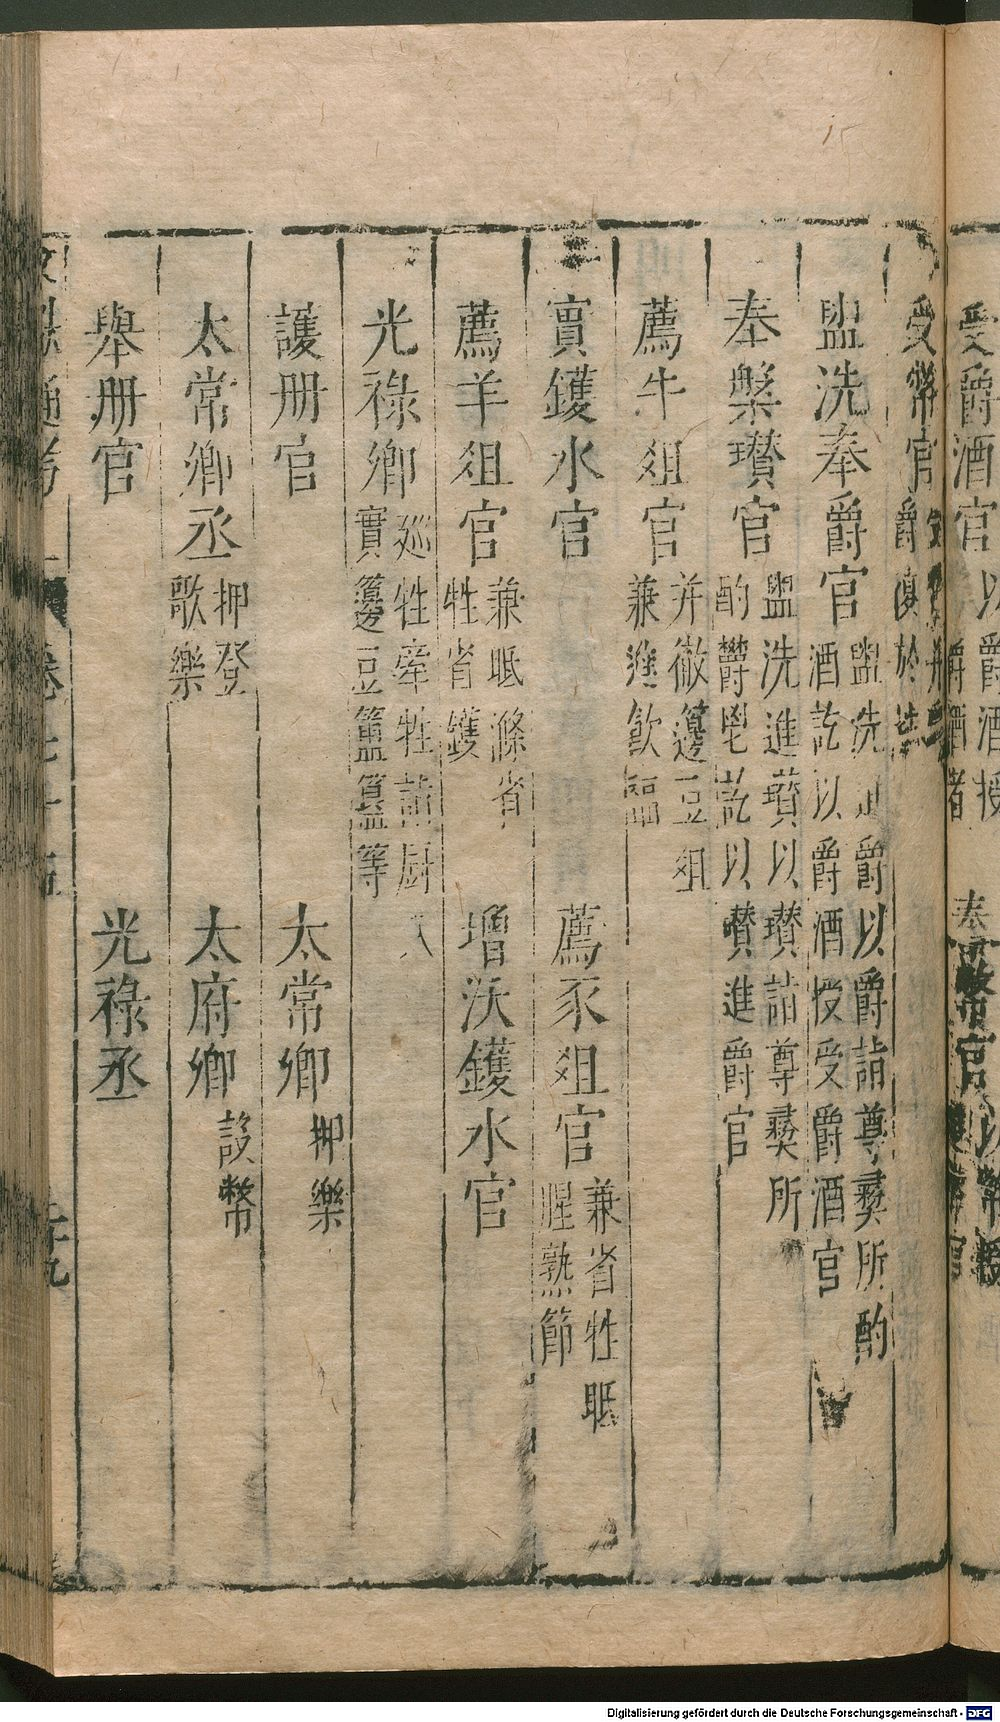 受爵酒官
以爵酒授
爵酒者
奉
幣官
以幣授
受幣官
爵復於坫
盥洗奉爵官
盥洗
爵以爵詣尊彞所酌
酒訖以爵酒授受爵酒官
奉槃瓚官
盥洗進瓚以瓚詣尊彞所
酌鬱鬯訖以瓚進爵官
薦牛俎官
并徹籩豆俎
兼進飲福
實鑊水官
薦豕俎官
兼省牲眡
腥熟節
薦羊俎官
兼眡滌省
牲省鑊
增沃鑊水官
光祿卿
廵牲牽牲詣厨
實籩豆簠簋等
護册官
太常卿
押樂
太常卿丞
押登
歌樂
太府卿
設幣
舉册官
光祿丞
卷七十五
二十九
Digitalisierung gefördert durch die Deutsche Forschungsgemeinschaft - DFG